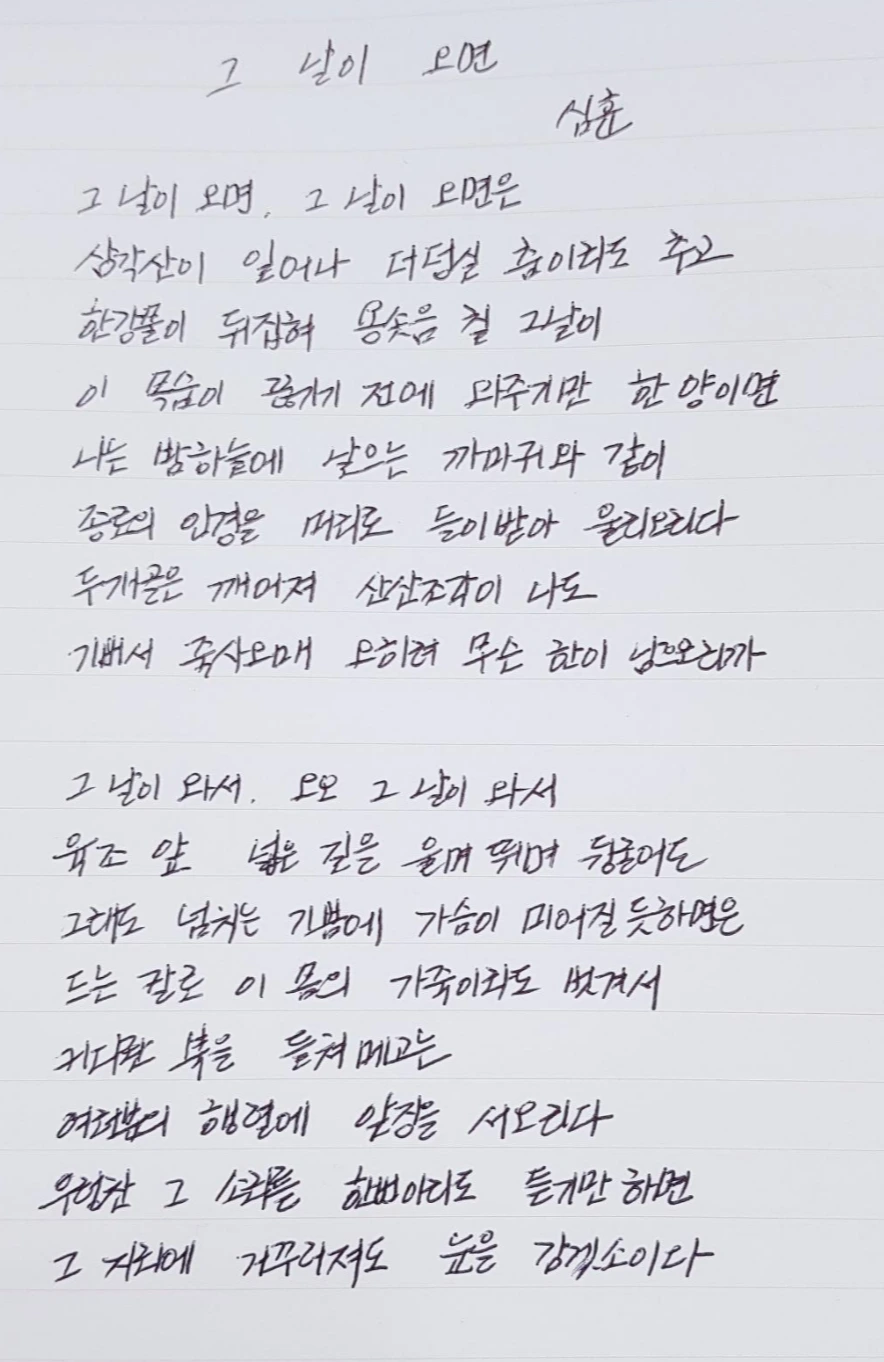 그 날이 오면
심훈
그 날이 오면, 그 날이 오면은
삼각산이 일어나 더덩실 춤이라도 추고
한강물이 뒤집혀 용솟음 칠 그날이
이 목숨이 끊기기 전에 와주기만 한 양이면
나는 밤하늘에 날으는 까마귀와 같이
종로의 인경을 머리로 들이받아 울리오리다
두개골은 깨어져 산산조각이 나도
기뻐서 죽사오매 오히려 무슨 한이 남으오리까
그 날이 와서, 오오 그 날이 와서
육조 앞 넓은 길을 울며 뛰며 뒹굴어도
그래도 넘치는 기쁨에 가슴이 미어질 듯하면은
드는 칼로 이 몸의 가죽이라도 벗겨서
커다란 북을 들쳐메고는
여러분의 행렬에 앞장을 서오리다
우렁찬 그 소리를 한번이라도 듣기만 하면
그 자리에 거꾸러져도 눈을 감겠소이다